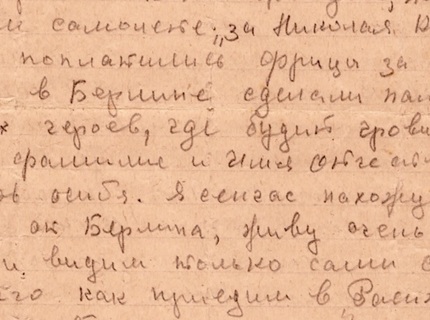 самолете; „за Николая
поплатились фрицы за
в Берлине сделали пам
х героев, где будит грови
фамилие и имя отчест
ов особя. Я сейчас нахожу
ок Берлина, живу очень
и видим только сами с
его как приедим в „Расих